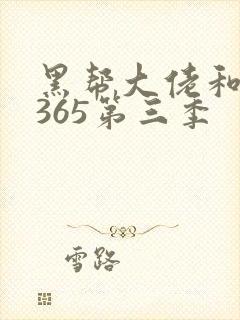 黑帮大佬和
365第三季
雪路